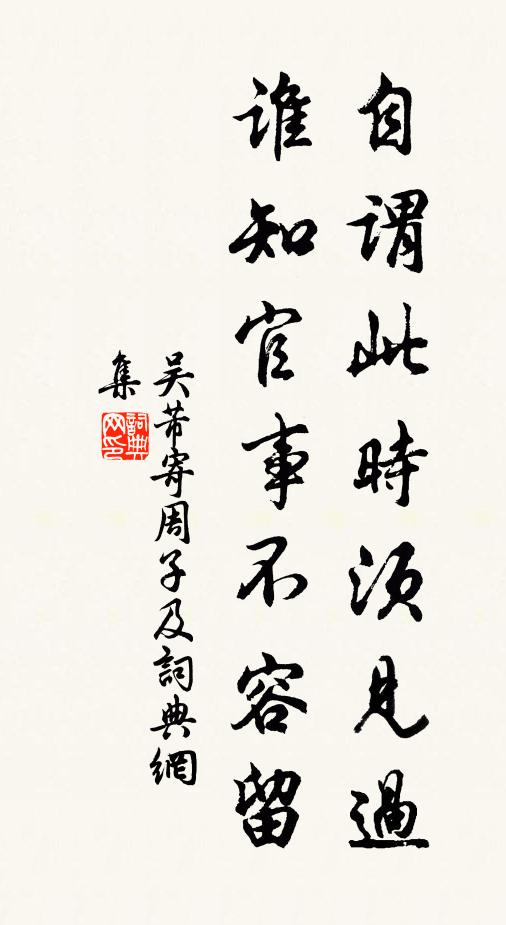 自謂此時須見過
誰知官事不容留
吳芾寄周子及詞典網
集
詞典
网印